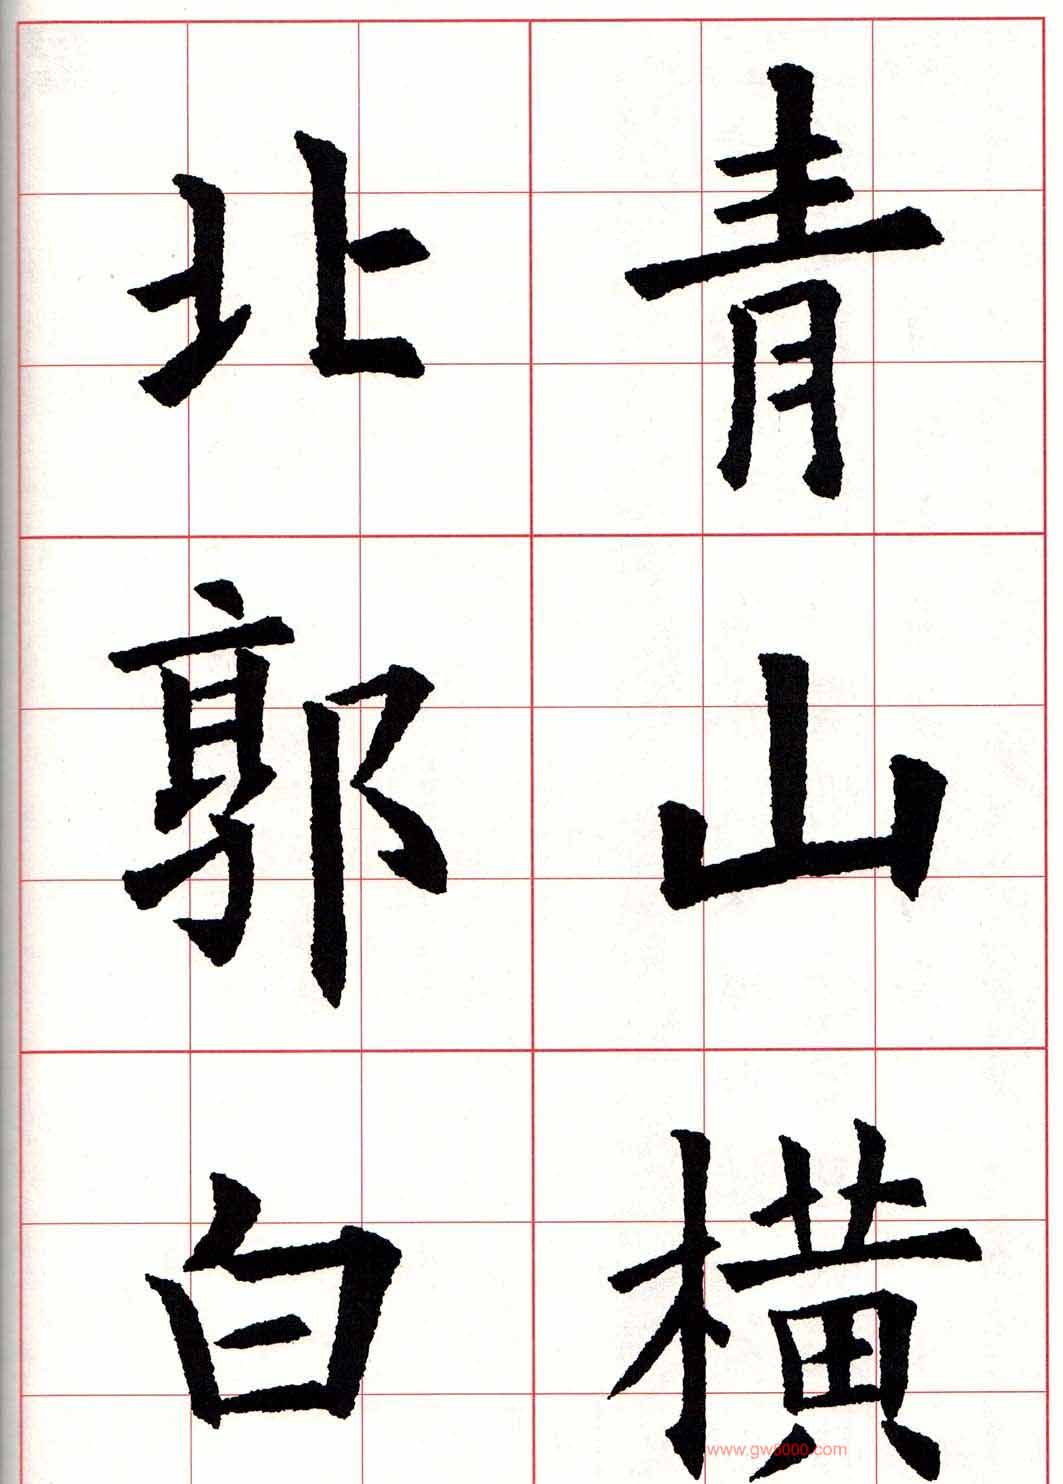 青山橫
北郭白
www.gw5000.com